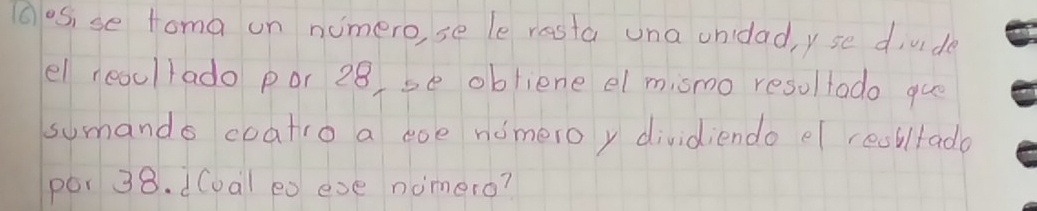 16 • Si se toma un número, se le resta una unidad, y se divide
el resultado por 28, se obtiene el mismo resultado que
sumando cuatro a ese número y dividiendo el resultado
por 38. ¿Cuál es ese número?